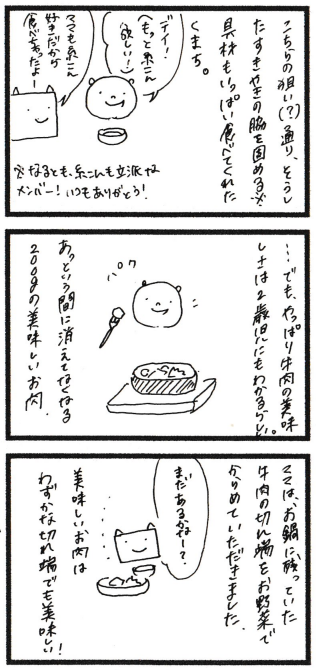 こちらの狙い(?)通り、そうし
たすきやきの脇を固める※
具材もいっぱい食べてくれた
くまち。
デイ!
(もっと糸こん
欲しい!)
ママも糸こん
好きだから
食べちゃったよー
※なるとも、糸こんも立派な
メンバー!いつもありがとう!
…でも、やっぱり牛肉の美味
しさは2歳児にもわかるらしく。
パクッ
あっという間に消えてなくなる
200gの美味しいお肉。
ママは、お鍋に残っていた
牛肉の切れ端をお野菜で
からめていただきました。
まだあるかなー?
美味しいお肉は
わずかな切れ端でも美味しい!